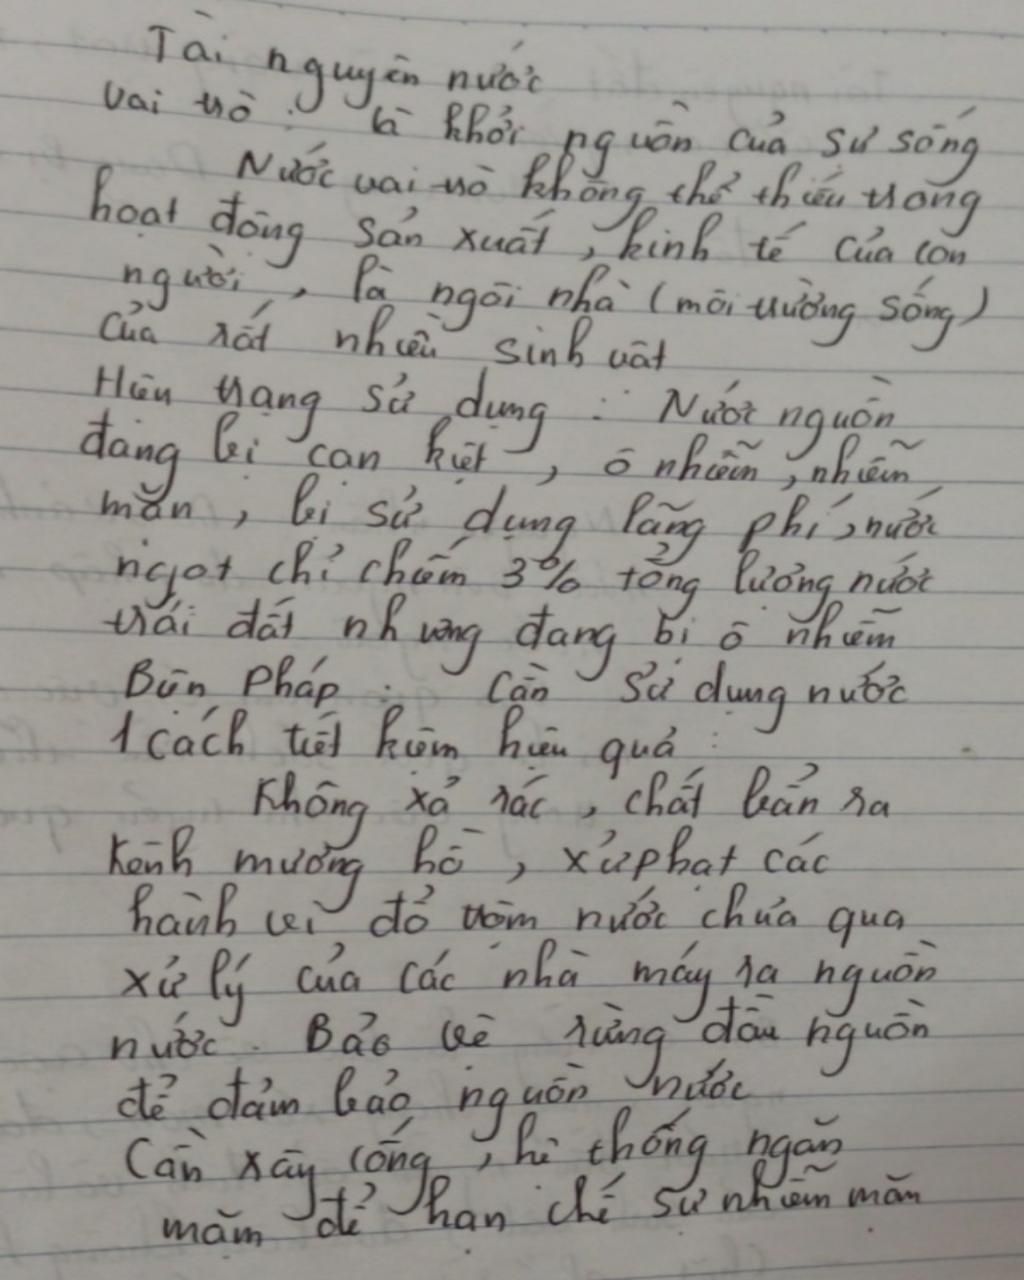 Tài nguyên nước
vai trò : là khởi nguồn của sự sống
Nước vai trò không thể thiếu trong
hoạt động sản xuất, kinh tế của con
người, là ngôi nhà (môi trường sống)
của rất nhiều sinh vật
Hiện trạng sử dụng : Nước nguồn
đang bị cạn kiệt, ô nhiễm, nhiễm
mặn, bị sử dụng lãng phí, nước
ngọt chỉ chiếm 3% tổng lượng nước
trái đất nhưng đang bị ô nhiễm
Biện pháp : Cần sử dụng nước
1 cách tiết kiệm hiệu quả :
Không xả rác, chất bẩn ra
kênh mương hồ, xử phạt các
hành vi đổ trộm nước chưa qua
xử lý của các nhà máy ra nguồn
nước. Bảo vệ rừng đầu nguồn
để đảm bảo nguồn nước
Cần xây cống, hệ thống ngăn
mặn để hạn chế sự nhiễm mặn